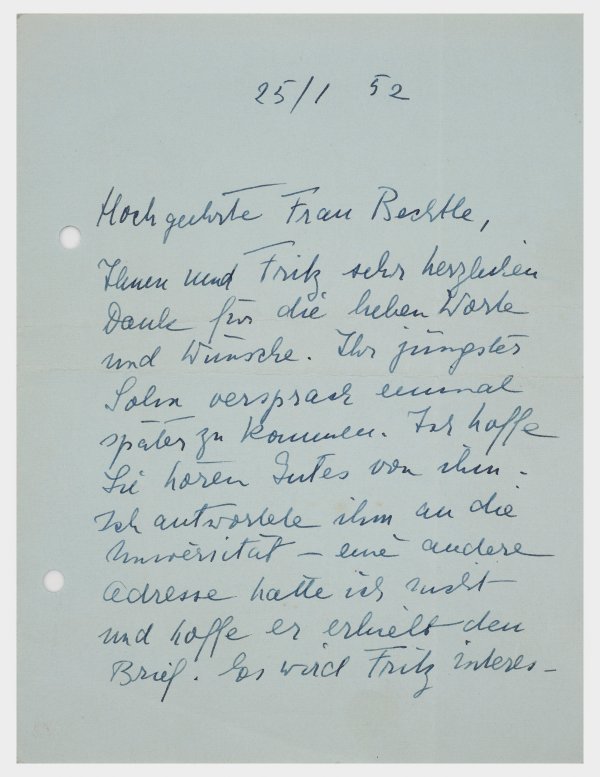 25/1 52
Hochgeehrte Frau Bechtle,
Ihnen und Fritz sehr herzlichen
Dank für die lieben Worte
und Wünsche. Ihr jüngster
Sohn versprach einmal
später zu kommen. Ich hoffe
Sie hören Gutes von ihm.
Ich antwortete ihm an die
Universität – eine andere
Adresse hatte ich nicht
und hoffe er erhielt den
Brief. Es wird Fritz interes-